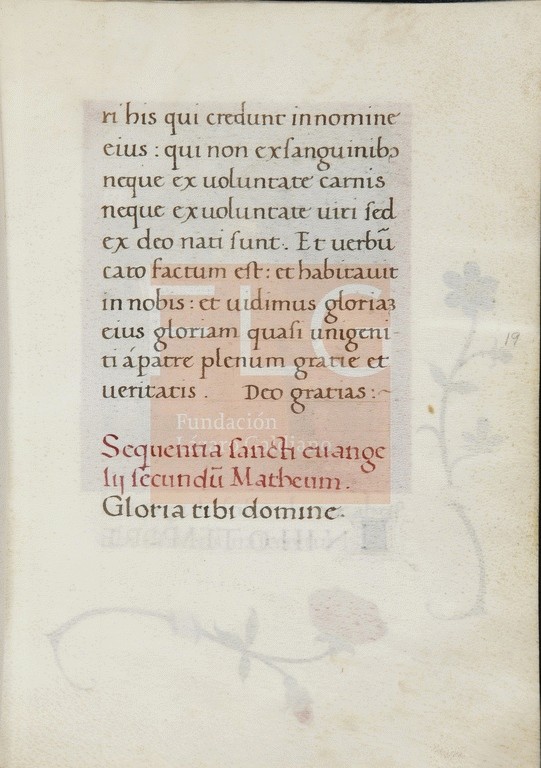 ri his qui credunt in nomine
eius : qui non ex sanguinibꝫ
neque ex uoluntate carnis
neque ex uoluntate uiri sed
ex deo nati sunt. Et uerbũ
caro factum est : et habitauit
in nobis : et uidimus gloriaꝫ
eius gloriam quasi unigeni-
ti á patre plenum gratie et
ueritatis . Deo gratias :~
Sequentia sancti euange
lij secundũ Matheum .
Gloria tibi domine.
19
FLG
Fundación
Lázaro Galdiano